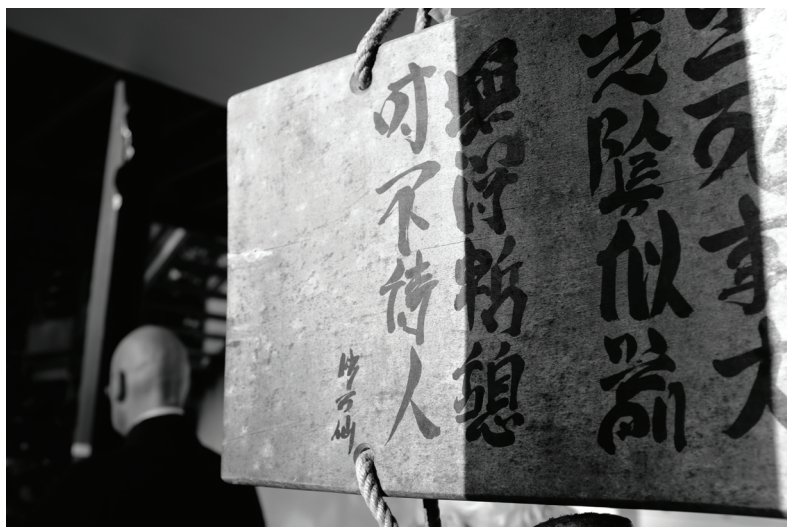 生死事大
光陰似箭
無得暫憩
时不待人